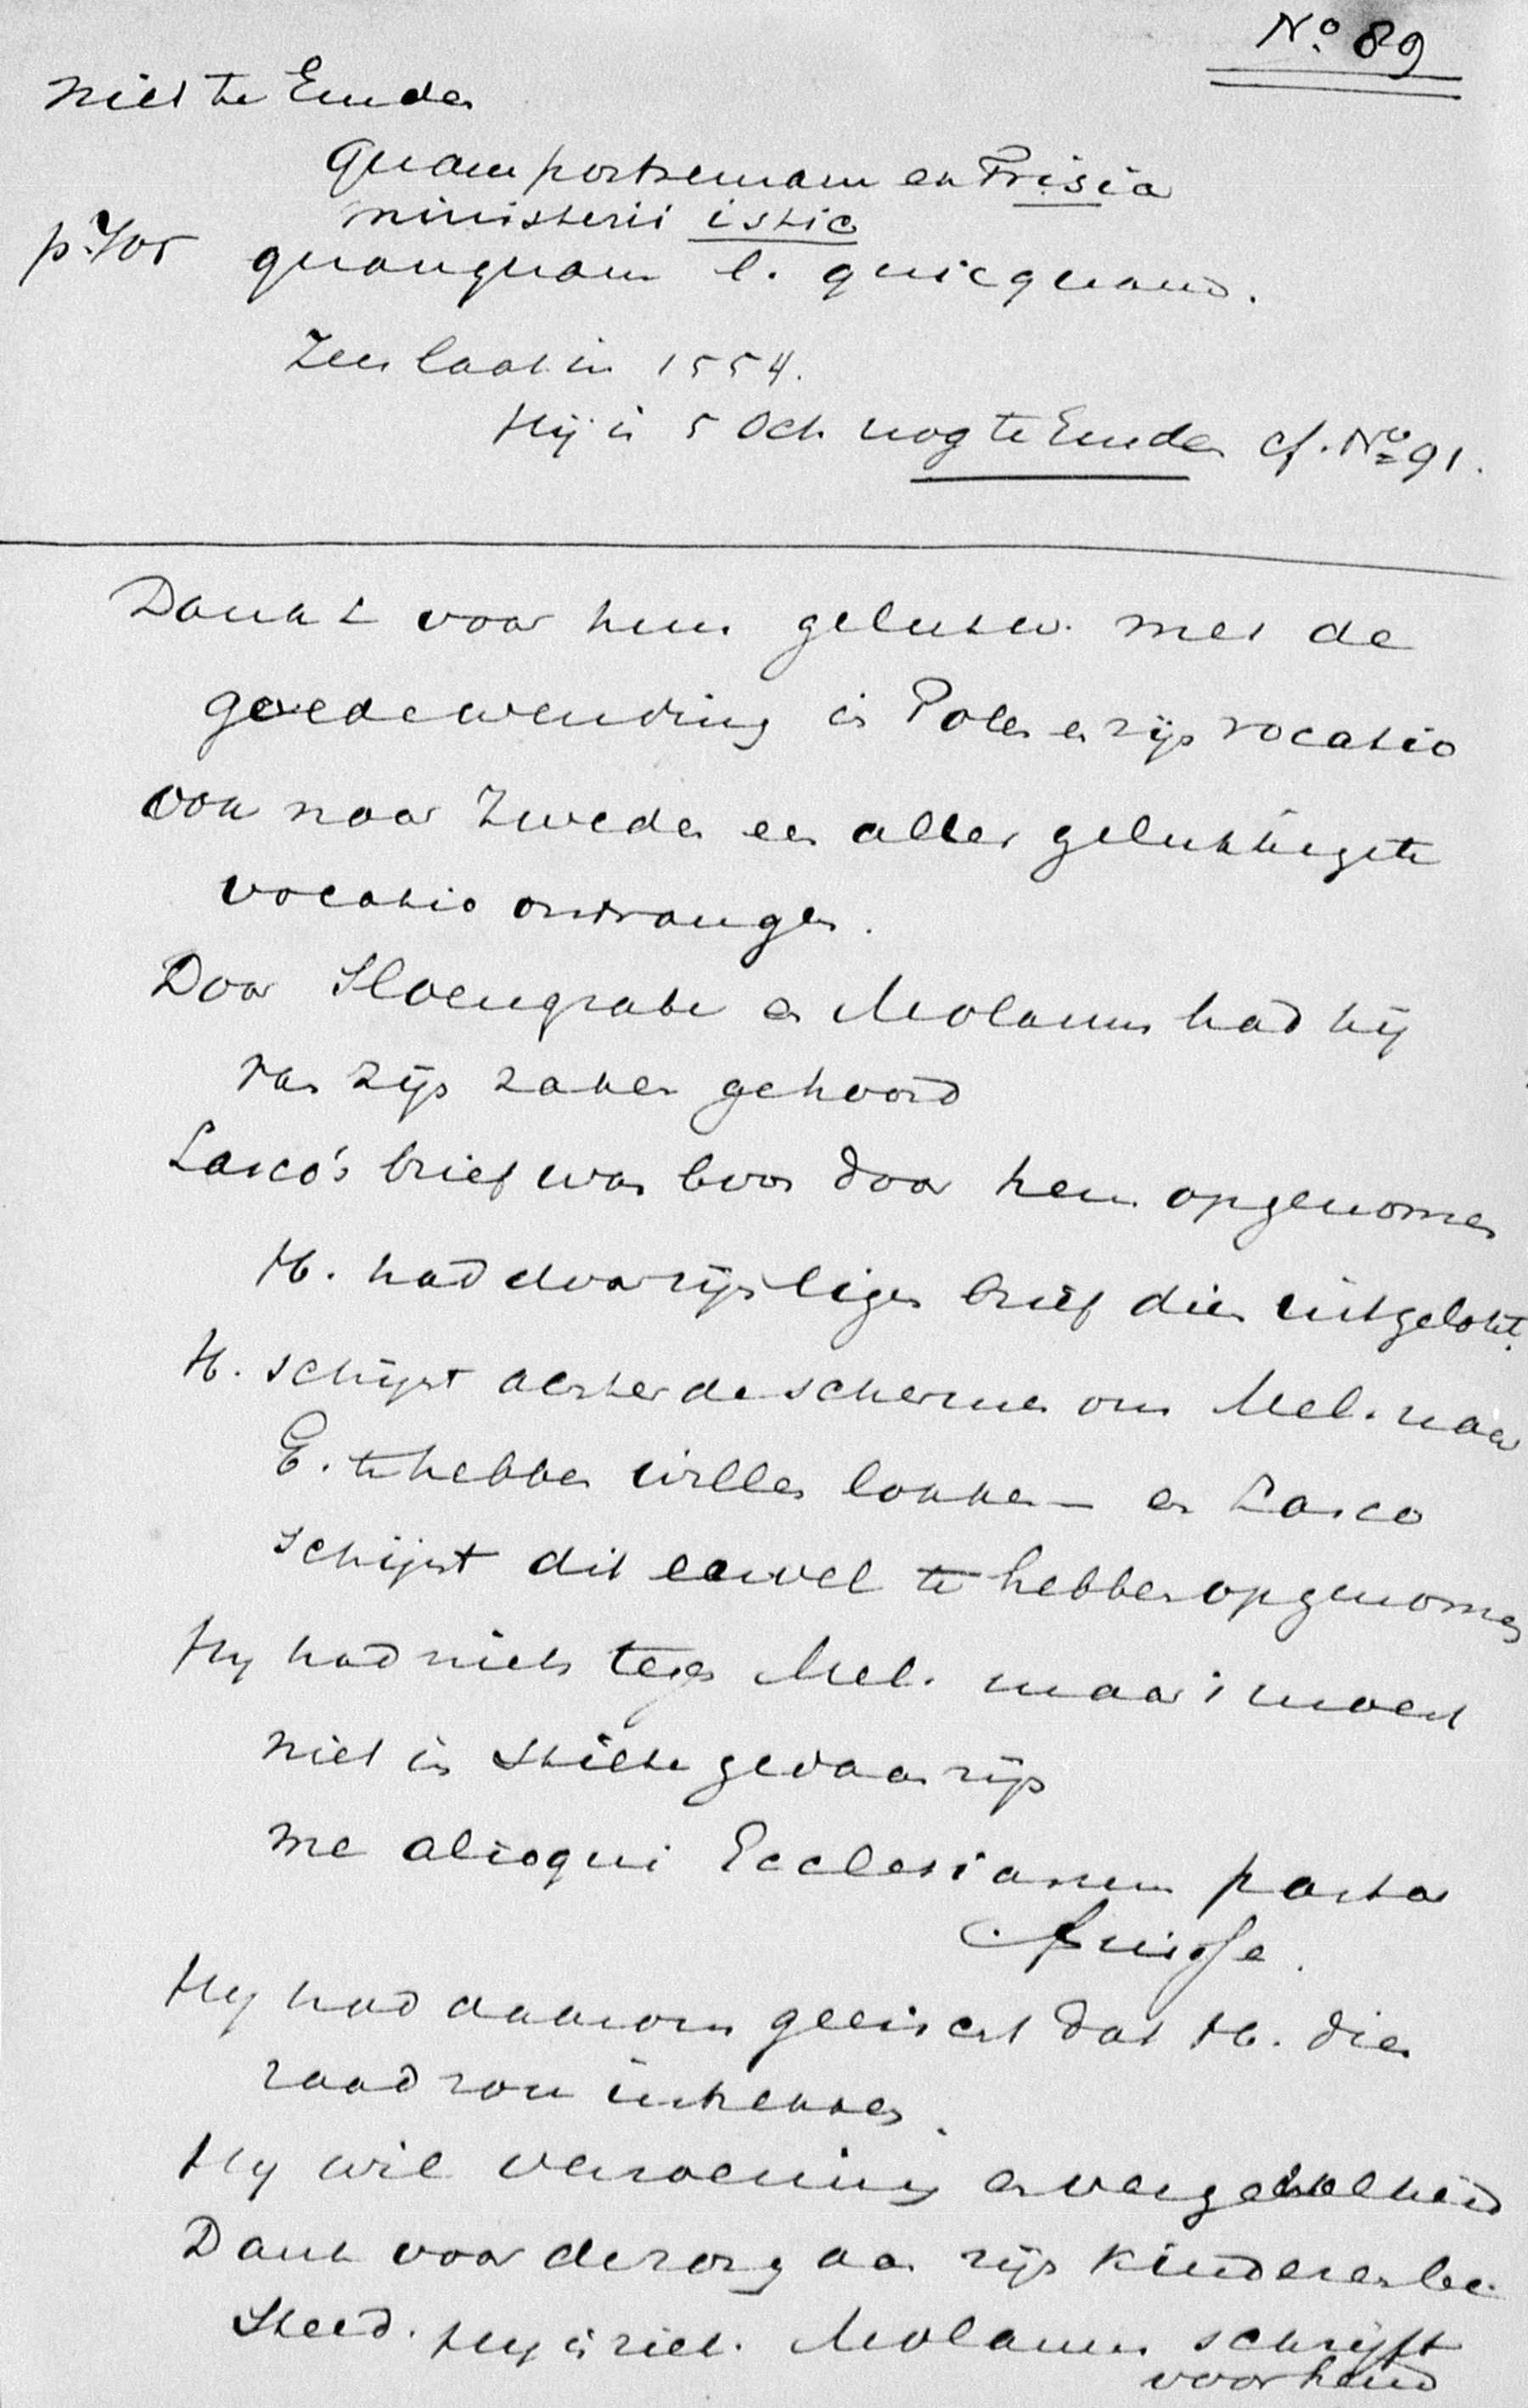 No 89
Niet te Emden
Quam postremam ex Frisia
ministerii istic
p. 705 quanquam l. quicquam.
Zeer laat in 1554.
Hij is 5 Oct nog te Emden cf. No 91.
Dankt voor hun gelukw. met de
goede wending in Polen en zijn vocatio
ook naar Zweden een aller gelukkigste
vocatio ontvangen.
Door Sloengrabe en Molanus had hij
van zijn zaken gehoord
Lasco's brief was boos door hem opgenomen
H. had door zijn eigen brief dien uitgelokt.
H. schijnt achter de schermen om Mel. naar
E. te hebben willen lokken – en Lasco
schijnt dit euvel te hebben opgenomen
Hij had niets tegen Mel. maar 't moest
niet in stilte gedaan zijn
me alioqui Ecclesiarum pastor
Hij had daarom geeischt dat H. dien
raad zou intrekken.
Hij wil verzoening en vergetelheid
Dank voor de zorg aan zijn kinderen be
steed. Hij is ziek. Molanus schrijft
voor hem